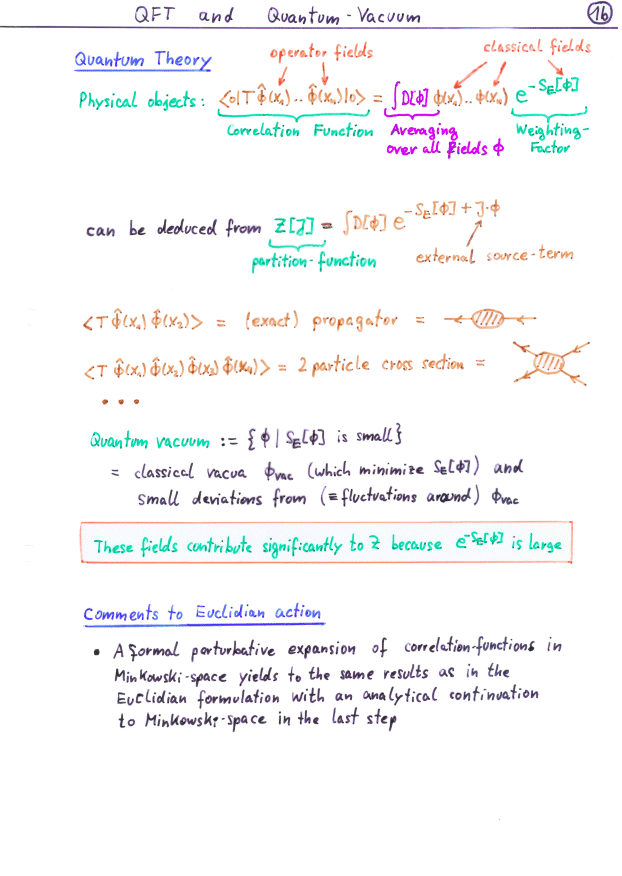 QFT and Quantum-Vacuum 16
Quantum Theory
operator fields classical fields
Physical objects: <0|T φ̂(x₁)..φ̂(xₙ)|0> = ∫D[φ] φ(x₁)..φ(xₙ) e^{-S_E[φ]}
Correlation Function Averaging over all fields φ Weighting-Factor
can be deduced from Z[J] = ∫D[φ] e^{-S_E[φ] + J·φ}
partition-function external source-term
<T φ̂(x₁) φ̂(x₂)> = (exact) propagator =
<T φ̂(x₁) φ̂(x₂) φ̂(x₃) φ̂(x₄)> = 2 particle cross section =
...
Quantum vacuum := {φ | S_E[φ] is small}
= classical vacua φ_vac (which minimize S_E[φ]) and
small deviations from (≡ fluctuations around) φ_vac
These fields contribute significantly to Z because e^{-S_E[φ]} is large
Comments to Euclidian action
• A formal perturbative expansion of correlation-functions in
Minkowski-space yields to the same results as in the
Euclidian formulation with an analytical continuation
to Minkowski-space in the last step